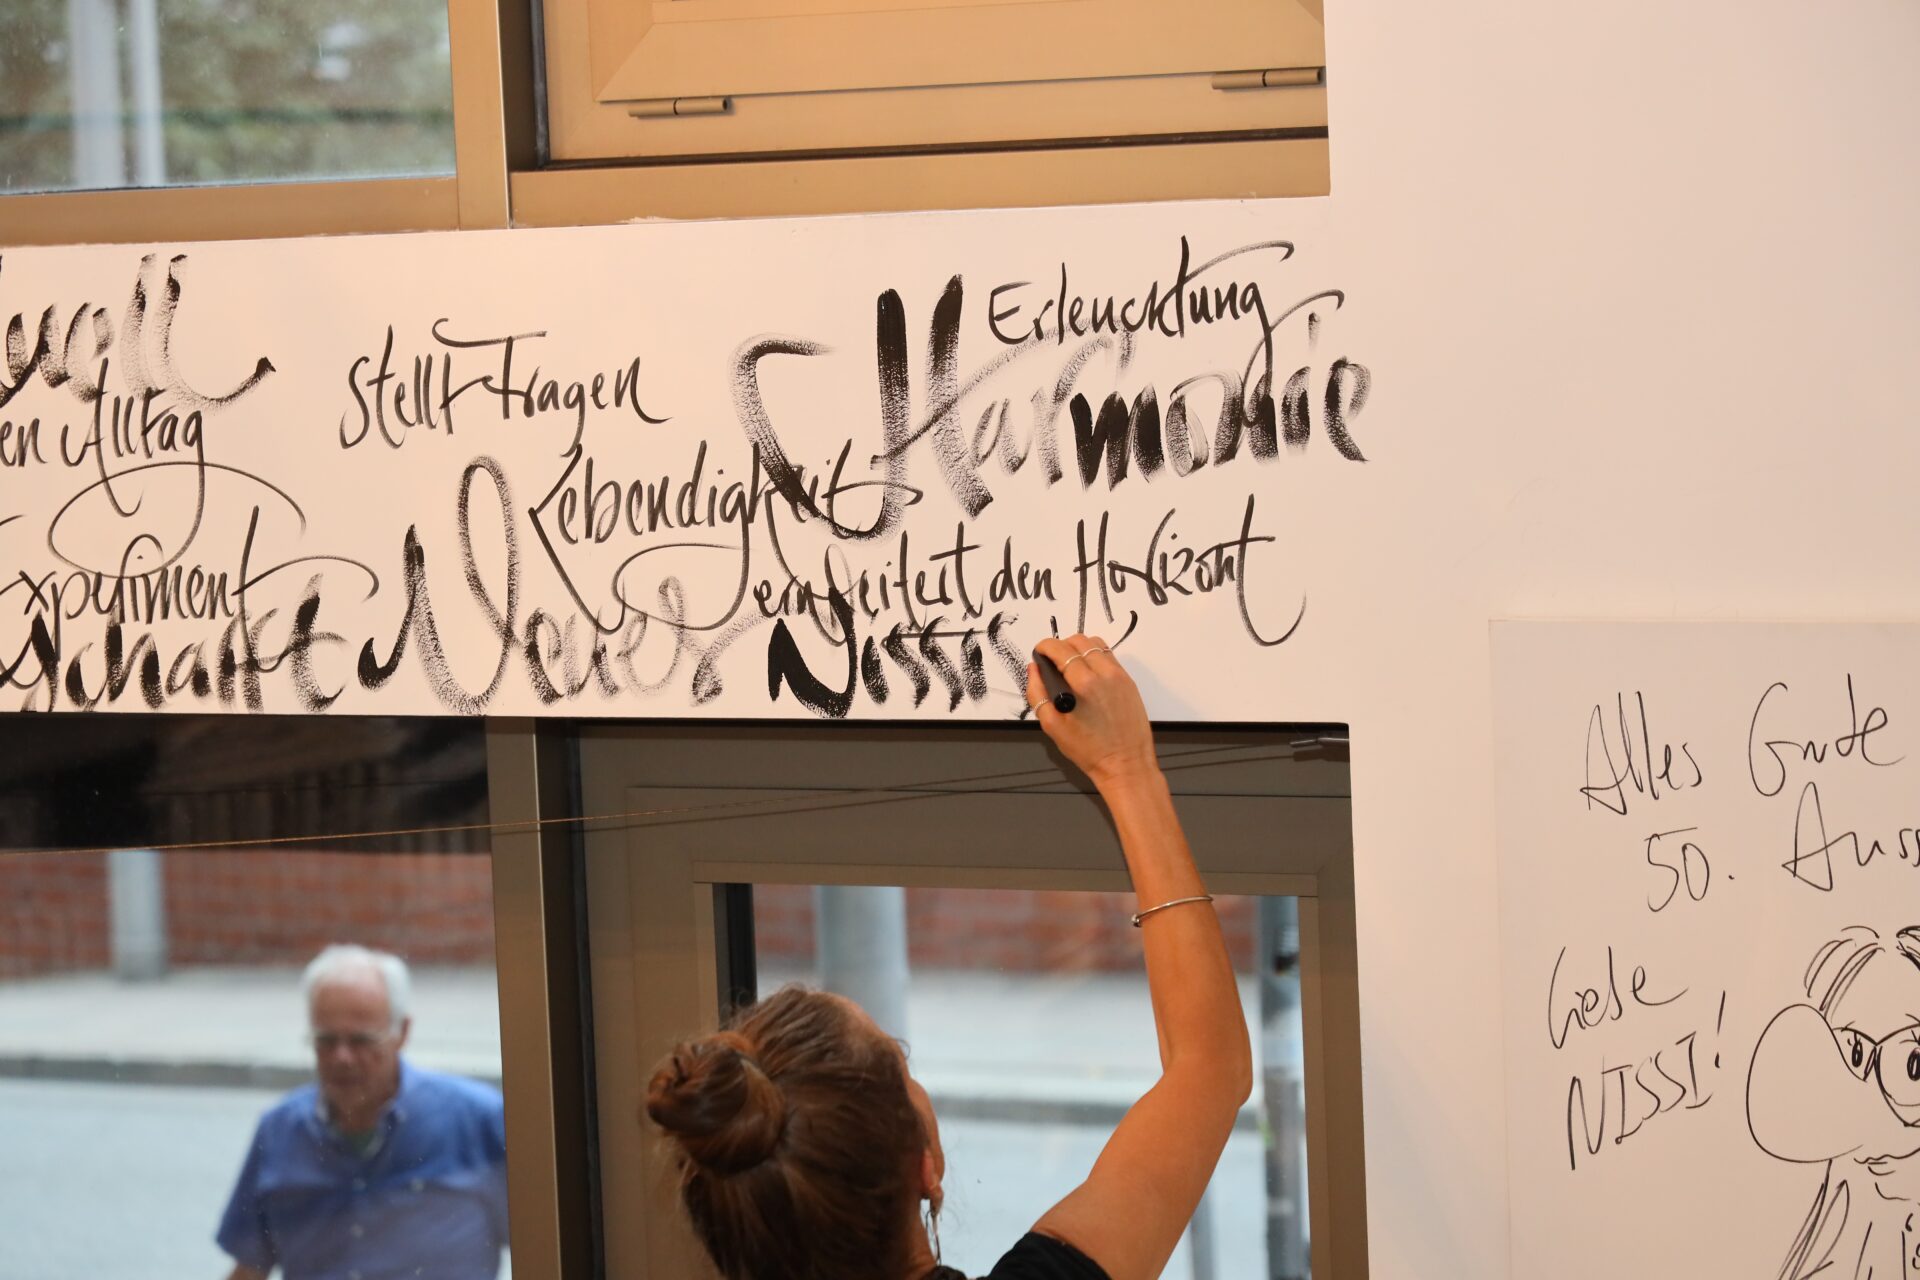 Erleuchtung
stellt Fragen
Harmonie
en Alltag
Lebendigkeit
Experiment
erweitert den Horizont
schafft Neues
Nissis
Alles Gute
50. Auss
Liebe
NISSI!